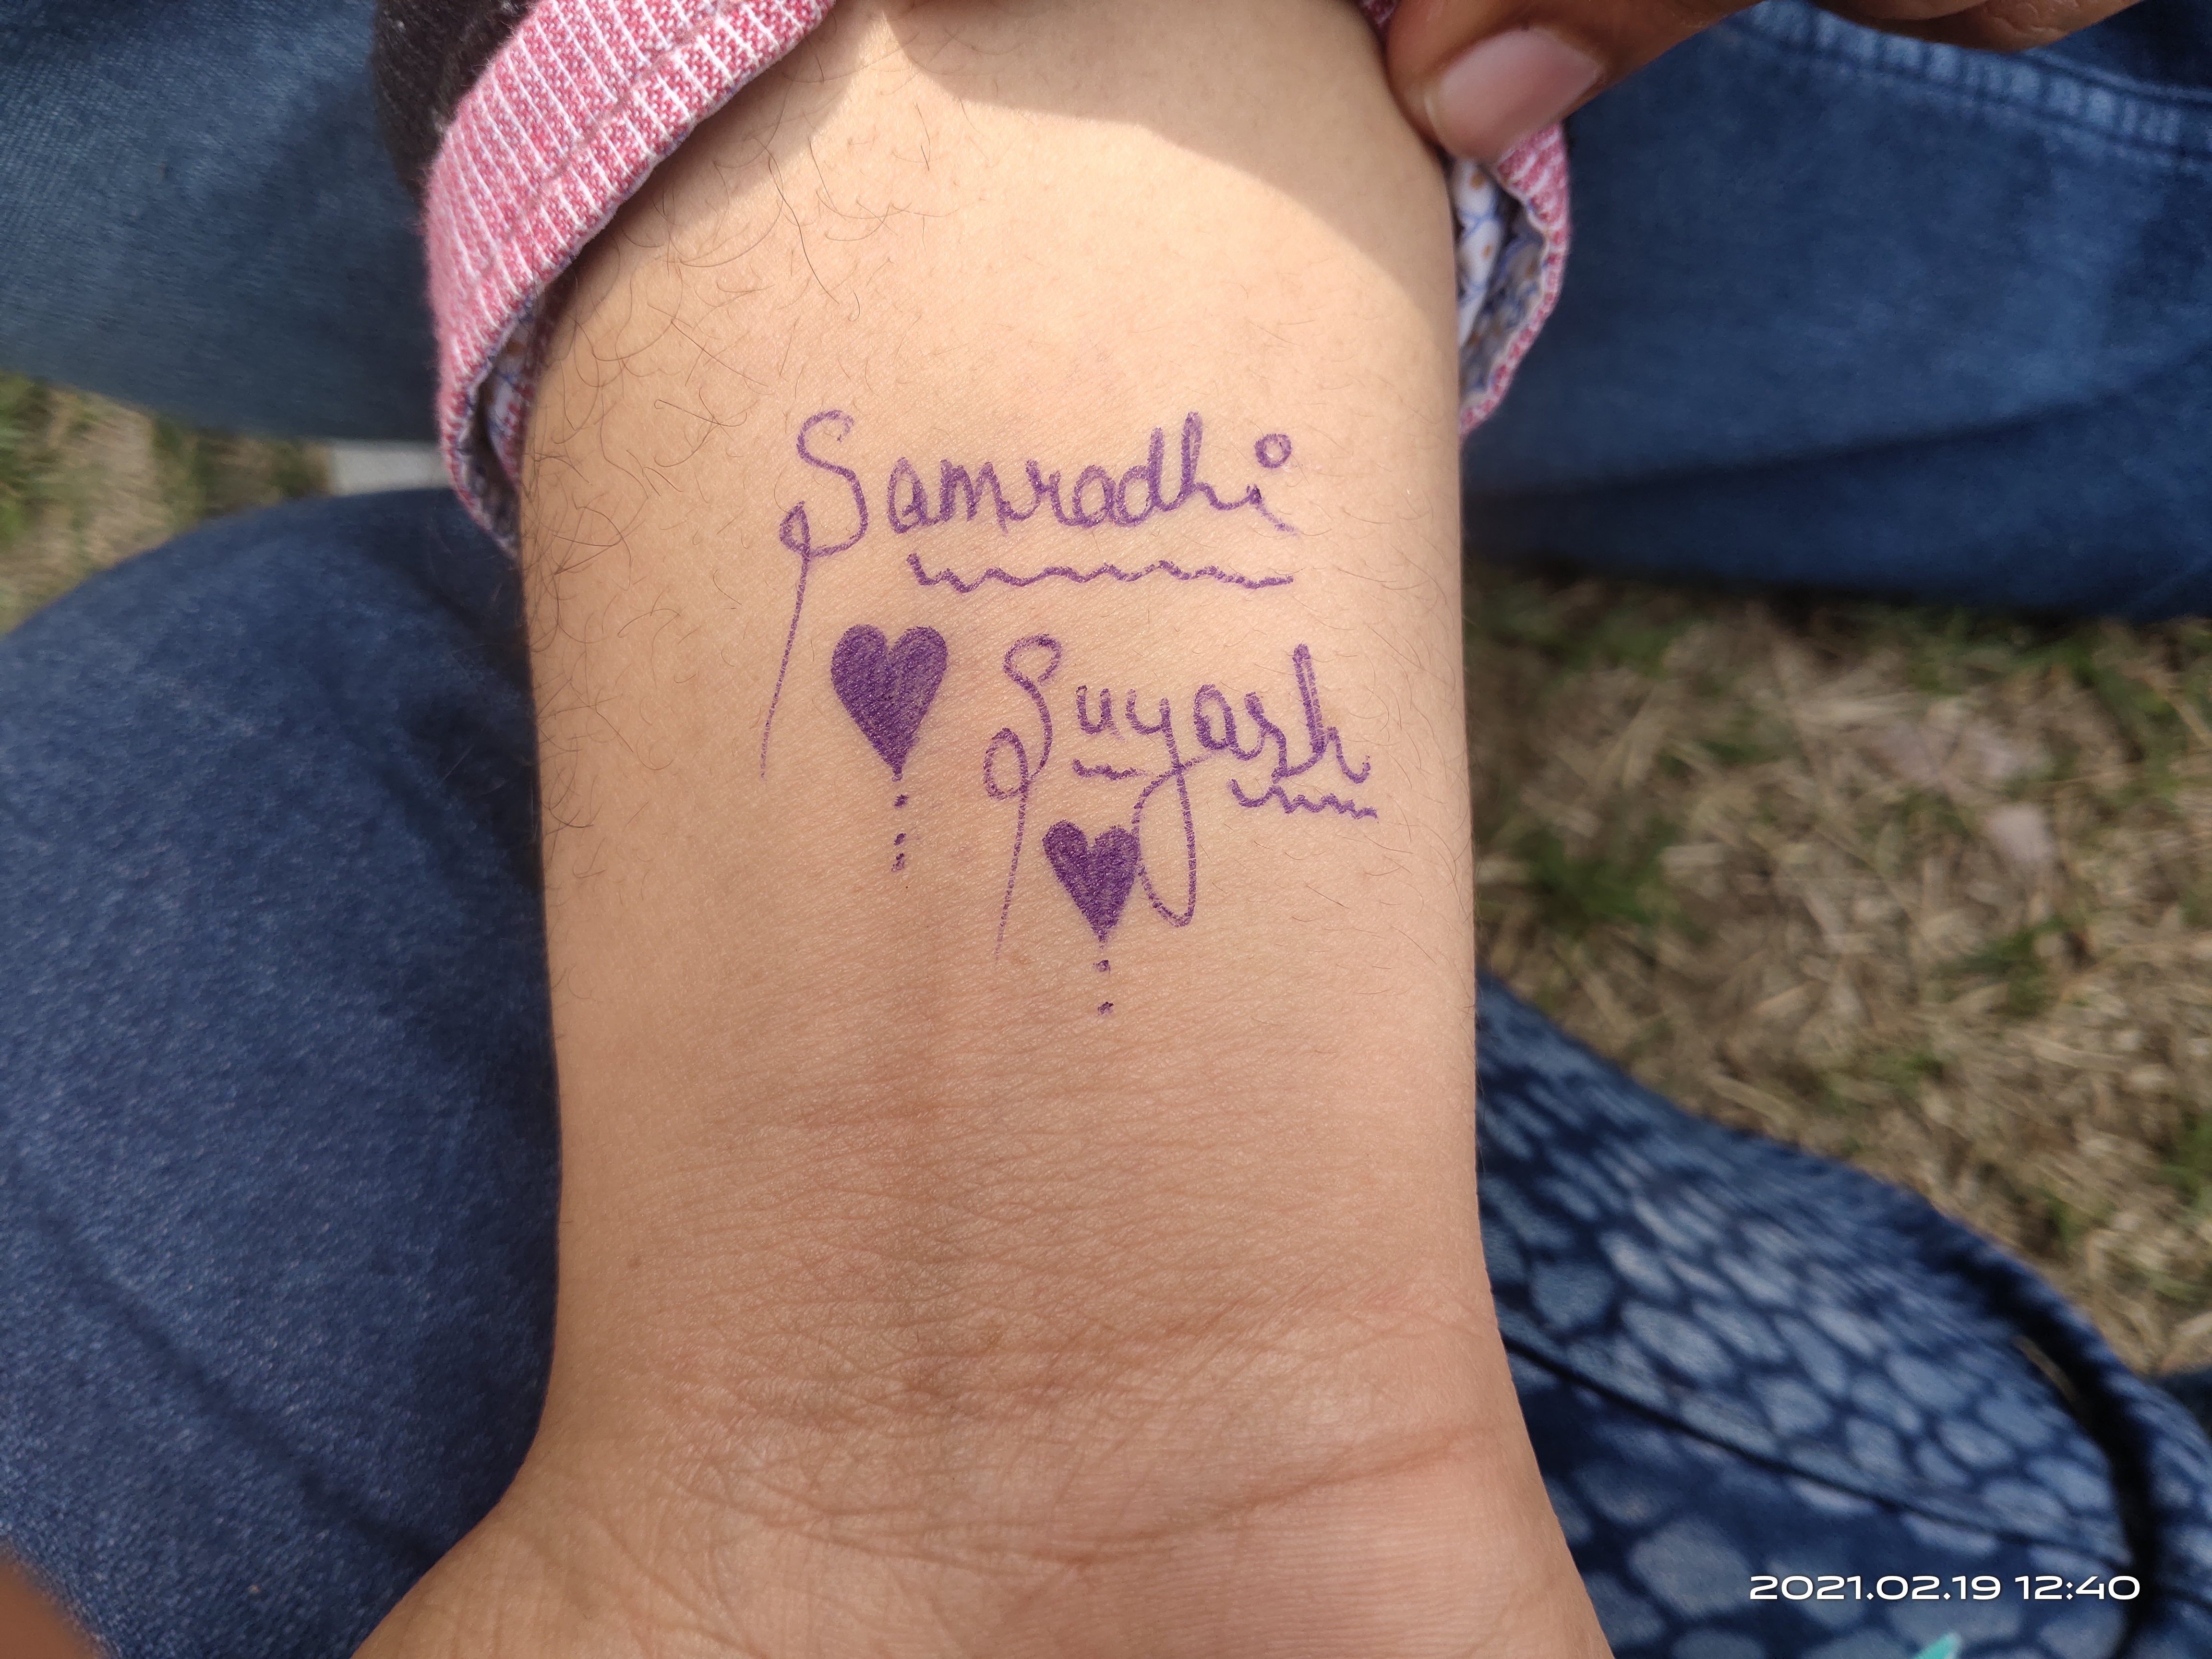 Samradhi
Suyash
2021.02.19 12:40